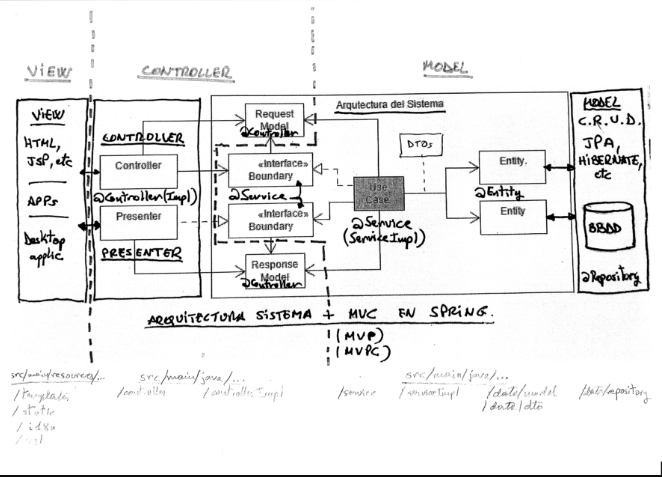 VIEW
CONTROLLER
MODEL
VIEW
HTML,
JSP, etc
APPs
Desktop
applic
CONTROLLER
Controller
@Controller(Impl)
Presenter
PRESENTER
Arquitectura del Sistema
Request
Model
@Controller
«Interface»
Boundary
@Service
«Interface»
Boundary
Response
Model
@Controller
Use
Case
@Service
(ServiceImpl)
DTOs
Entity.
@Entity
Entity
MODEL
C.R.U.D.
JPA,
HIBERNATE,
etc
BBDD
@Repository
ARQUITECTURA SISTEMA + MVC EN SPRING.
(MVP)
(MVPC)
src/main/resources/...
/templates
/static
/i18n
src/main/java/...
/controller
/controllerImpl
src/main/java/...
/service
/serviceImpl
/data/model
/data/dto
/data/repository